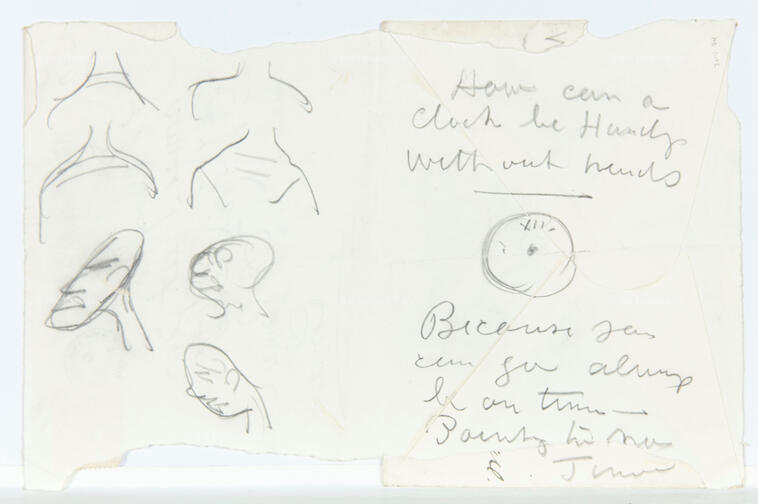 How can a
clock be Handy
without hands
XII
Because you
can go always
be on time
to no
Time